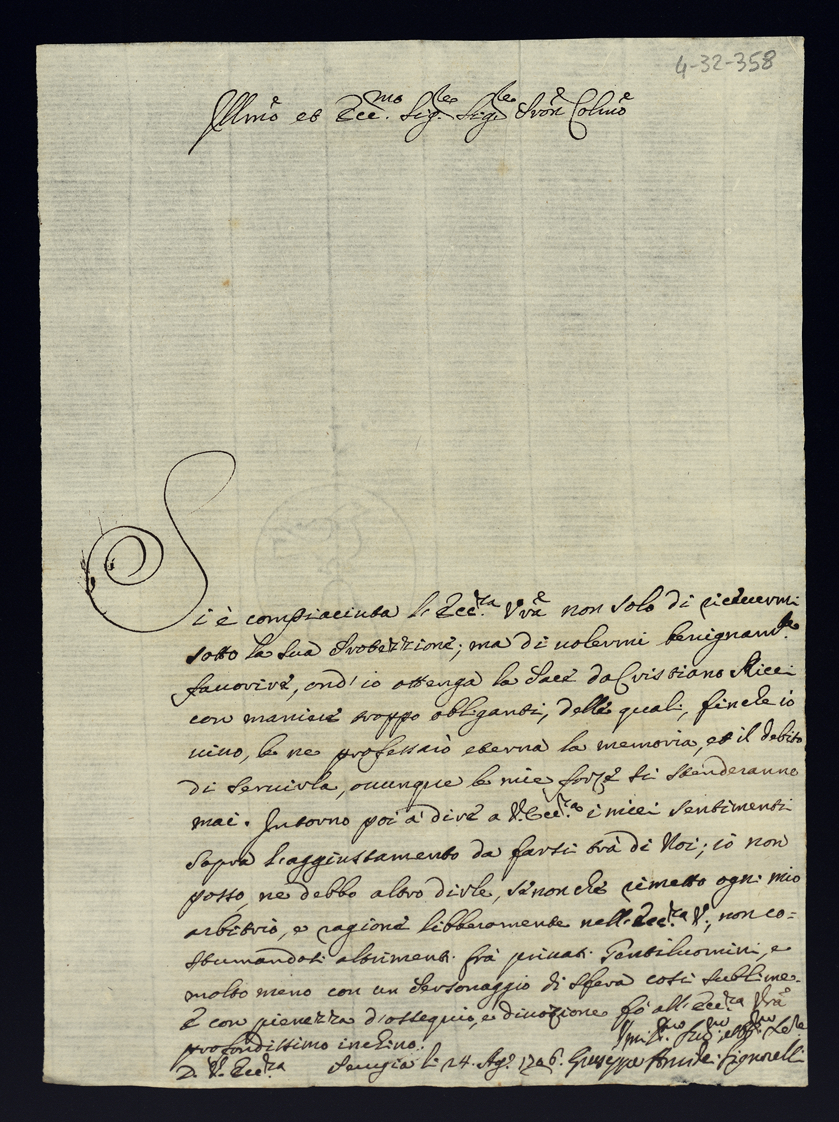 4-32-358
Illmo et Ecc.mo Sig.re Sig.re Pron Colmo
Si è compiaciuta l'Ecc.za Vra non solo di riceuermi
sotto la sua Protezzione; ma di uolermi benignam.te
fauorire, ond' io ottenga la Pace da Cristiano Ricci
con maniere troppo obliganti, delle quali, finche io
uiuo, le ne professarò eterna la memoria, et il debito
di seruirla, ouunque le mie forze si stenderanno
mai. Intorno poi à dire a V. Ecc.za i miei sentimenti
sopra l'aggiustamento da farsi trà di Noi; io non
posso, ne debbo altro dirle, se non che rimetto ogni mio
arbitrio, e ragione libberamente nell'Ecc.za V., non co=
stumandosi altrimenti frà priuati Gentiluomini, e
molto meno con un Personaggio di sfera così sublime.
E con pienezza d'ossequio, e diuozione fò all'Ecc.za Vra
profondissimo inchino.
D. V. Ecc.za
Perugia li 24. Ag.o 1706.
Giuseppe Signorelli